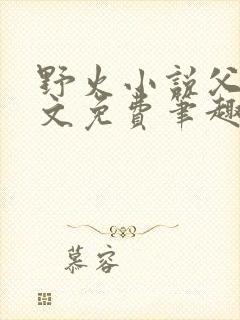 野火小说父
文免费笔趣
慕容